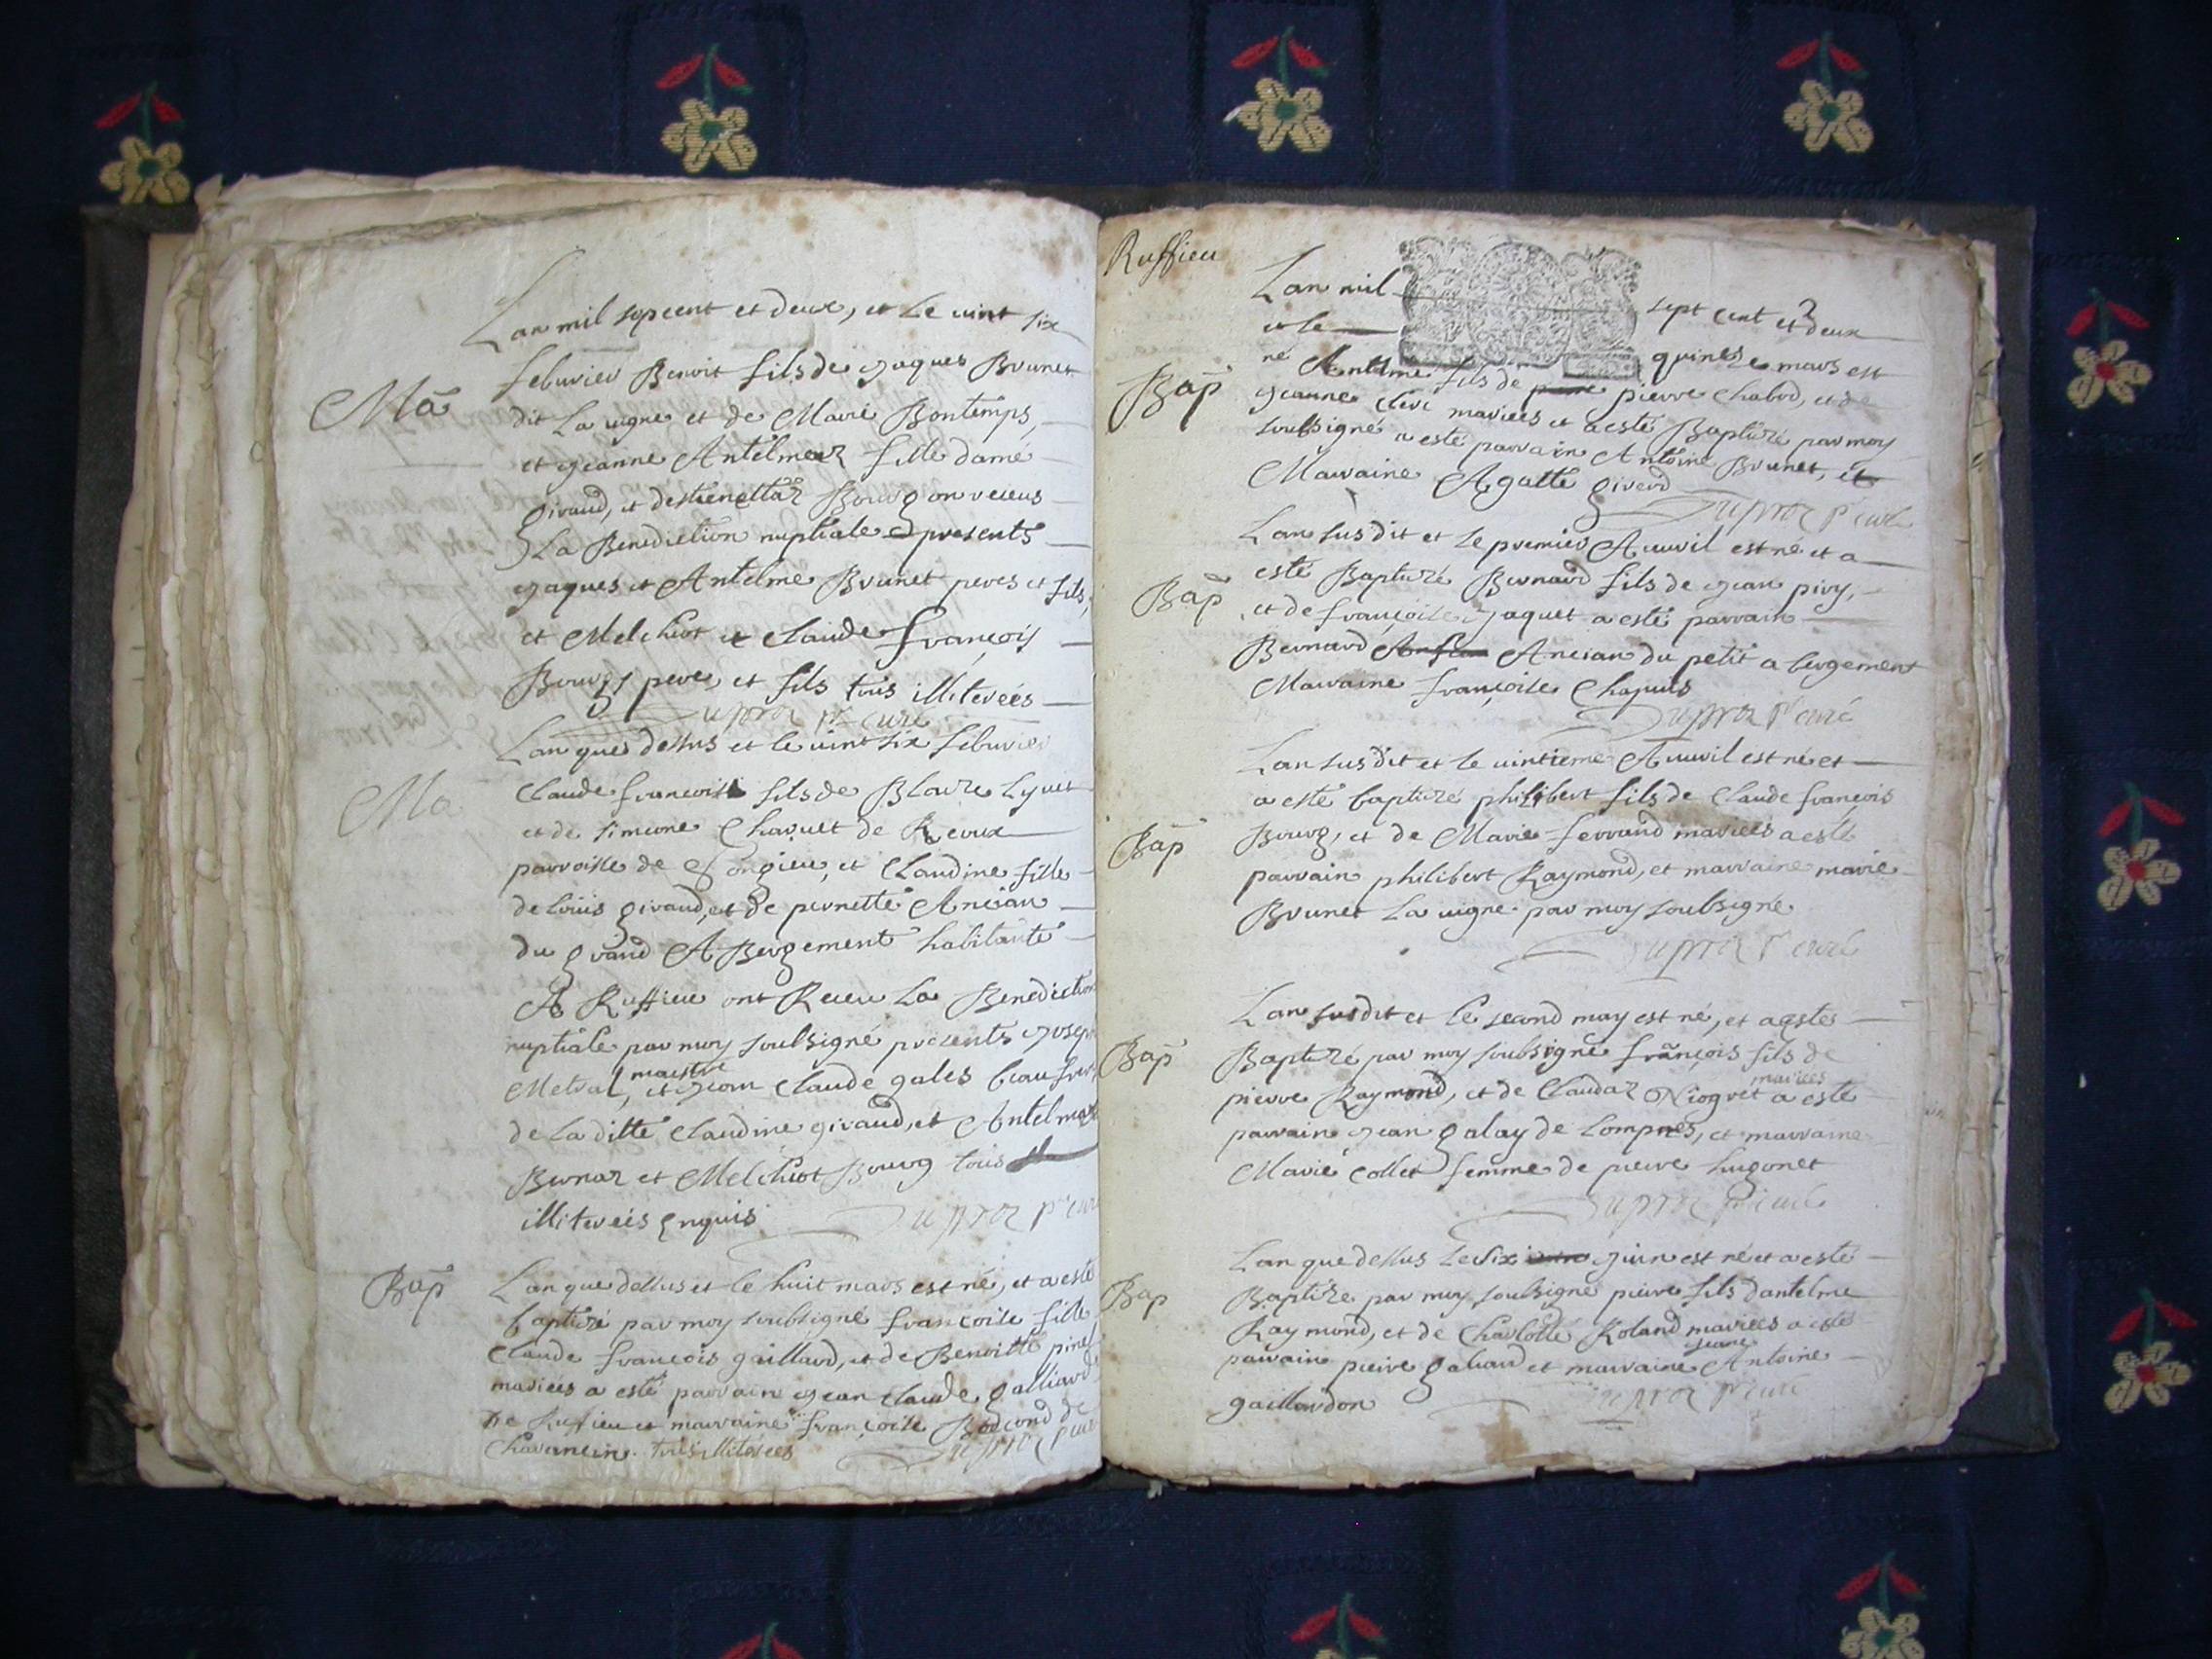 Lan mil sepcent et deux, et Le uint six
Ma
febuvier Benoit fils de Jaques Brunet
dit La uigne et de Marie Bontemps,
et Jeanne Antelmaz fille damé
giraud, et destienettaz Bourg on receus
La Benediction nuptiale presents
Jaques et Antelme Brunet peres et fils,
et Melchiot et Claude françois
Bourg peres et fils tous illiterées
Dupraz p. curé
Lan que dessus et le uint six febuvier
Ma
Claude francois fils de Blaise Lyuet
et de simeone Chapuet de
parroisse de Songieu, et Claudine fille
de Louis giraud, et de pernette Ancian
du grand ABergement habitante
A Ruffieu ont Receu La Benediction
nuptiale par moy soubsigné presents Joseph
maistre
Metral, et Jean Claude gales beau frere
de La ditte Claudine giraud, et Antelme
Bernaz et Melchiot Bourg tous
illiterées enquis
Dupraz p curé
Bap
Lan que dessus et le huit mars est né, et a esté
baptizé par moy soubsigné francoise fille
Claude francois gaillard, et de Benoitte pinet
mariees a esté parrain Jean Claude galliard
de Ruffieu et marraine françoise de
Chavanein tous illiterées
Dupraz p curé
Ruffieu
Lan mil sept cent et deux
et le quinze mars est
Bap
né Antelme fils de pierre Chabod, et de
Jeanne Clerc mariees et a esté Baptizé par moy
soubsigné a esté parrain Antoine Brunet, et
Marraine Agatte giraud
Dupraz p curé
Lan susdit et le premier Auvril est né et a
Bap
esté Baptizé Bernard fils de Jean pivy,
et de françoise Jaquet a esté parrain
Bernard Ancian du petit abergement
Marraine françoise Chapuis
Dupraz p curé
Lan susdit et le uintieme Auvril est né et
a esté baptizé philibert fils de Claude françois
Bap
Bourg, et de Marie ferrand mariées a esté
parrain philibert Raymond, et marraine marie
Brunet La uigne par moy soubsigné
Dupraz p curé
Lan susdit et le second may est né, et a esté
Bap
Baptizé par moy soubsigné françois fils de
mariees
pierre Raymond, et de Claudaz Niogret a esté
parrain Jean galay de Lompnes, et marraine
Marie Collet femme de pierre hugonet
Dupraz p curé
Lan que dessus Le six Juin est né et a esté
Bap
Baptize par moy soubsigné pierre fils dantelme
Raymond, et de Charlotte Roland mariees a esté
Jeane
parrain pierre galiard et marraine Antoine
gaillardon
Dupraz p curé